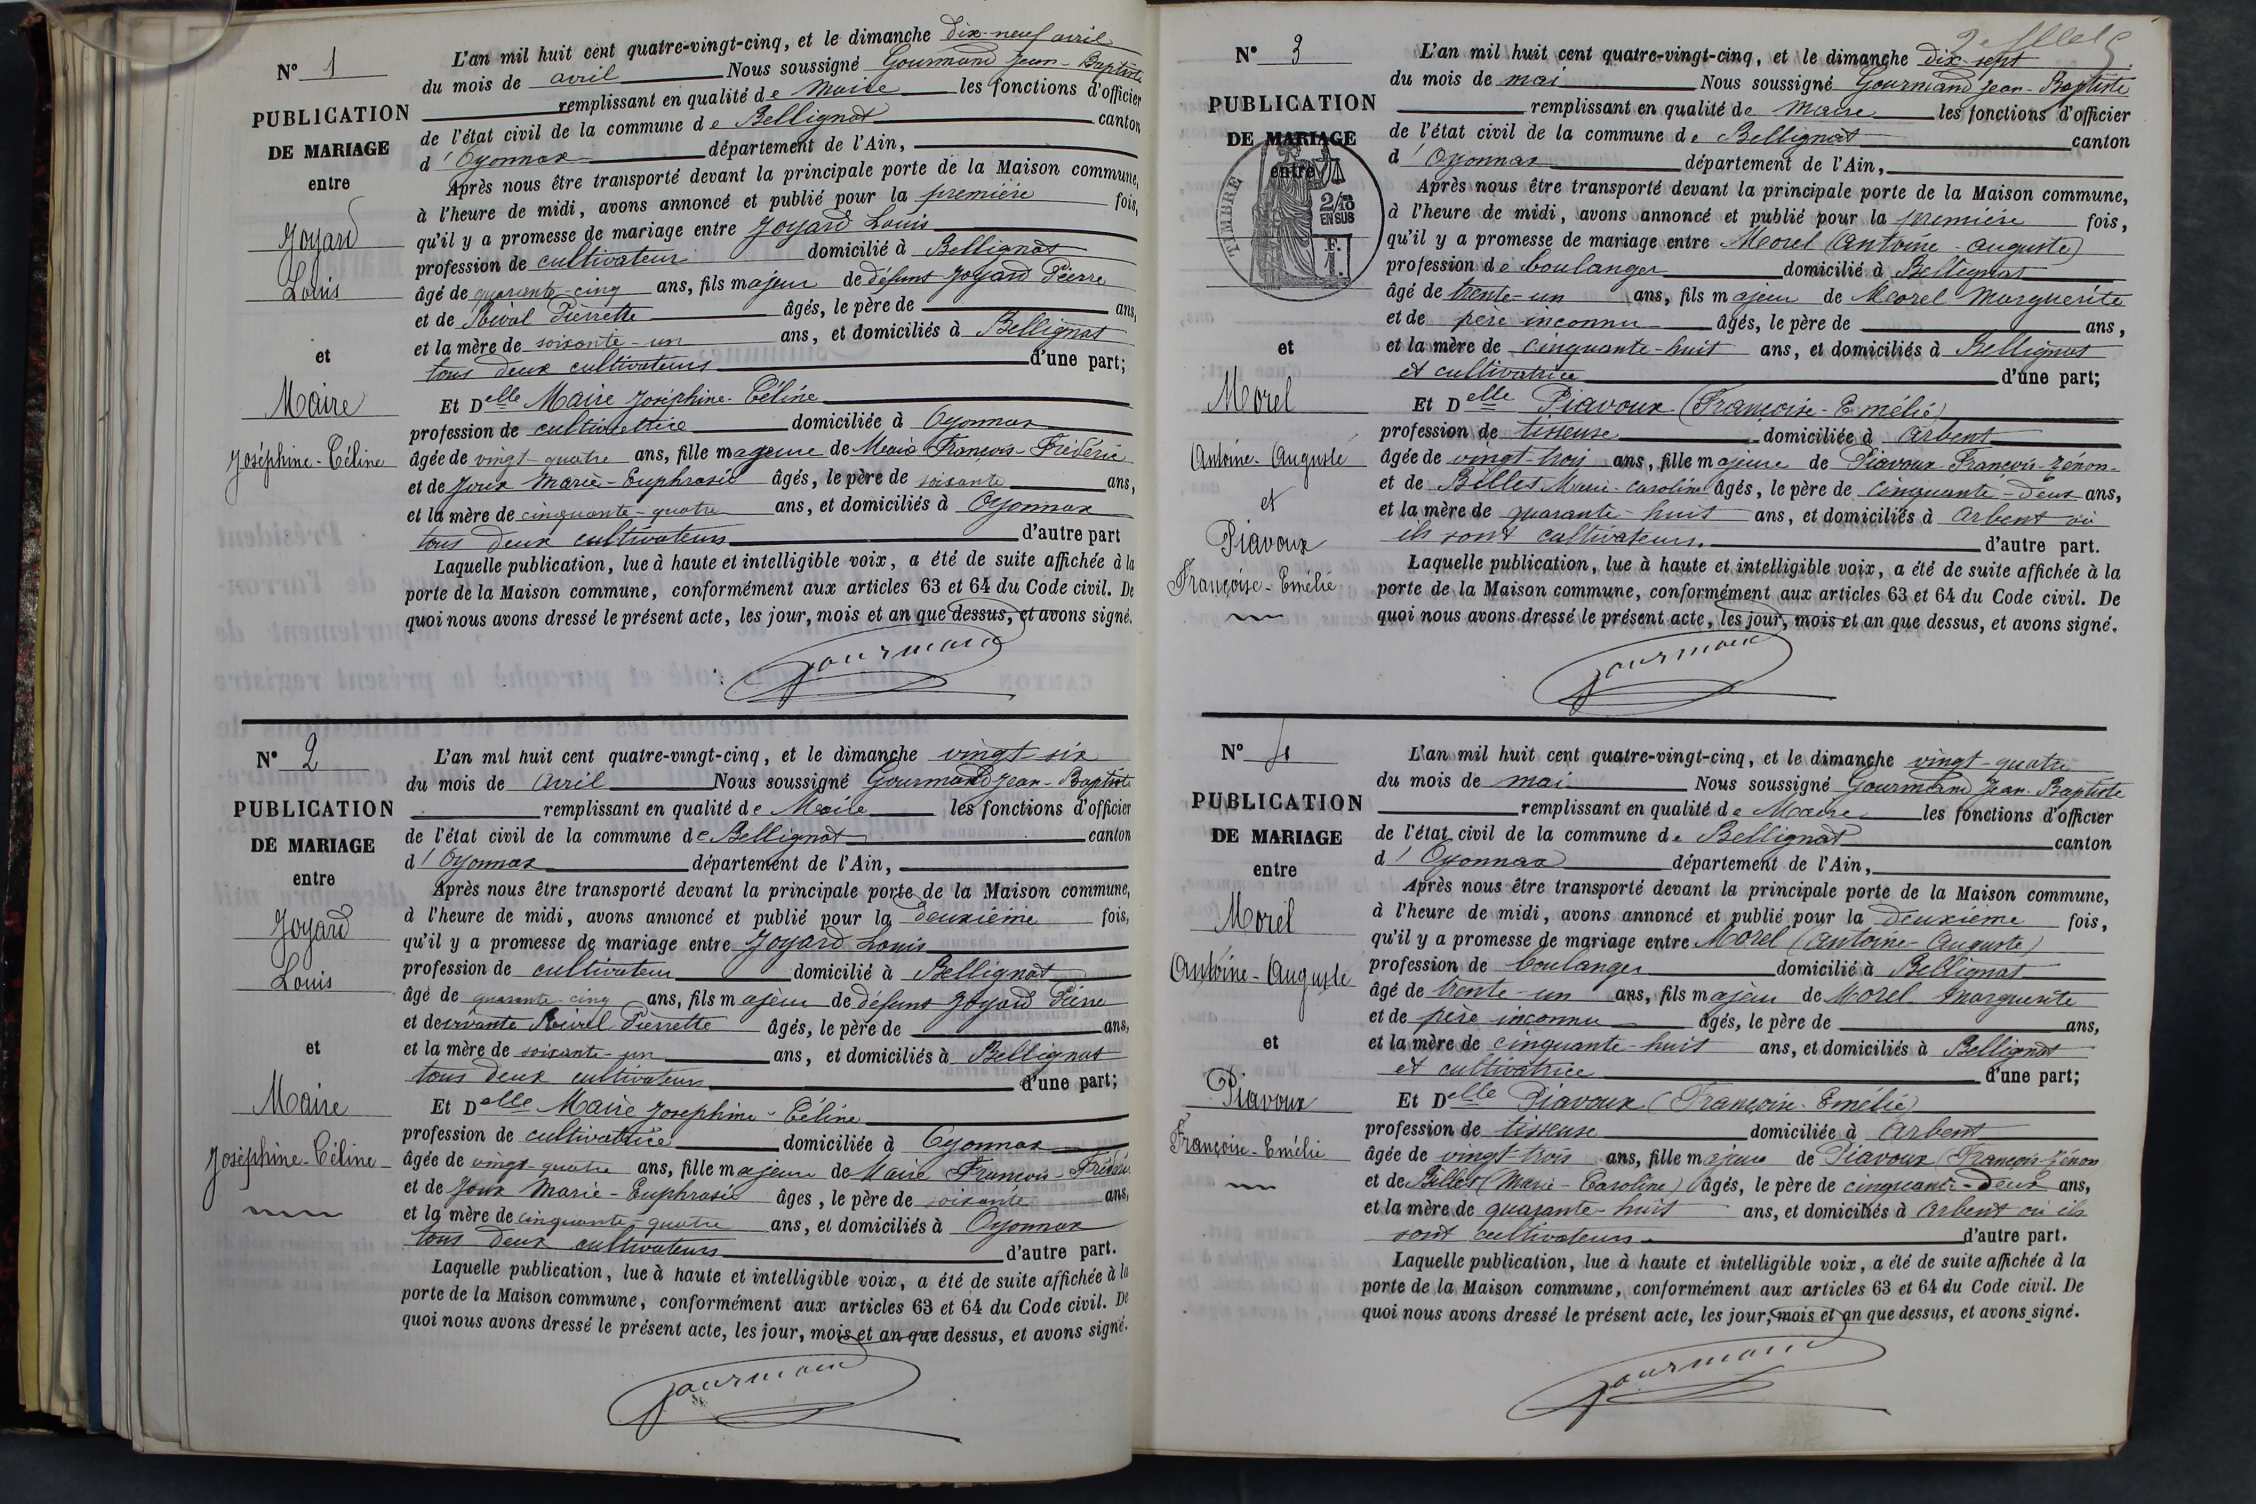 N° 1
PUBLICATION
DE MARIAGE
entre
Joyard
Louis
et
Maire
Joséphine-Céline
L'an mil huit cent quatre-vingt-cinq, et le dimanche dix-neuf avril
du mois de avril Nous soussigné Gourmand Jean-Baptiste
remplissant en qualité de Maire les fonctions d'officier
de l'état civil de la commune de Bellignat canton
d'Oyonnax département de l'Ain,
Après nous être transporté devant la principale porte de la Maison commune,
à l'heure de midi, avons annoncé et publié pour la première fois,
qu'il y a promesse de mariage entre Joyard Louis
profession de cultivateur domicilié à Bellignat
âgé de quarante-cinq ans, fils majeur de défunt Joyard Pierre
et de Pierrette âgés, le père de ans,
et la mère de soixante-un ans, et domiciliés à Bellignat
tous deux cultivateurs d'une part;
Et Delle Maire Joséphine-Céline
profession de cultivatrice domiciliée à Oyonnax
âgée de vingt-quatre ans, fille majeure de François-Frédéric
et de Joux Marie-Euphrasie âgés, le père de soixante ans,
et la mère de cinquante-quatre ans, et domiciliés à Oyonnax
tous deux cultivateurs d'autre part
Laquelle publication, lue à haute et intelligible voix, a été de suite affichée à la
porte de la Maison commune, conformément aux articles 63 et 64 du Code civil. De
quoi nous avons dressé le présent acte, les jour, mois et an que dessus, et avons signé.
Gourmand
N° 2
PUBLICATION
DE MARIAGE
entre
Joyard
Louis
et
Maire
Joséphine-Céline
L'an mil huit cent quatre-vingt-cinq, et le dimanche vingt-six
du mois de avril Nous soussigné Gourmand Jean-Baptiste
remplissant en qualité de Maire les fonctions d'officier
de l'état civil de la commune de Bellignat canton
d'Oyonnax département de l'Ain,
Après nous être transporté devant la principale porte de la Maison commune,
à l'heure de midi, avons annoncé et publié pour la deuxième fois,
qu'il y a promesse de mariage entre Joyard Louis
profession de cultivateur domicilié à Bellignat
âgé de quarante-cinq ans, fils majeur de défunt Joyard Pierre
et de vivante Pierrette âgés, le père de ans,
et la mère de soixante-un ans, et domiciliés à Bellignat
tous deux cultivateurs d'une part;
Et Delle Maire Joséphine-Céline
profession de cultivatrice domiciliée à Oyonnax
âgée de vingt-quatre ans, fille majeure de Maire François-Frédéric
et de Joux Marie-Euphrasie âges, le père de soixante ans,
et la mère de cinquante-quatre ans, et domiciliés à Oyonnax
tous deux cultivateurs d'autre part.
Laquelle publication, lue à haute et intelligible voix, a été de suite affichée à la
porte de la Maison commune, conformément aux articles 63 et 64 du Code civil. De
quoi nous avons dressé le présent acte, les jour, mois et an que dessus, et avons signé.
Gourmand
N° 3
PUBLICATION
DE MARIAGE
entre
TIMBRE
2/10
EN SUS
F.
1.
et
Morel
Antoine-Auguste
et
Piavoux
Françoise-Emélie
L'an mil huit cent quatre-vingt-cinq, et le dimanche dix-sept
du mois de mai Nous soussigné Gourmand Jean-Baptiste
remplissant en qualité de Maire les fonctions d'officier
de l'état civil de la commune de Bellignat canton
d'Oyonnax département de l'Ain,
Après nous être transporté devant la principale porte de la Maison commune,
à l'heure de midi, avons annoncé et publié pour la première fois,
qu'il y a promesse de mariage entre Morel (Antoine-Auguste)
profession de boulanger domicilié à Bellignat
âgé de trente-un ans, fils majeur de Morel Marguerite
et de père inconnu âgés, le père de ans,
et la mère de cinquante-huit ans, et domiciliés à Bellignat
et cultivatrice d'une part;
Et Delle Piavoux (Françoise-Emélie)
profession de tisseuse domiciliée à Arbent
âgée de vingt-trois ans, fille majeure de Piavoux François-Zénon-
et de Billet Marie-Caroline âgés, le père de cinquante-deux ans,
et la mère de quarante-huit ans, et domiciliés à Arbent où
ils sont cultivateurs. d'autre part.
Laquelle publication, lue à haute et intelligible voix, a été de suite affichée à la
porte de la Maison commune, conformément aux articles 63 et 64 du Code civil. De
quoi nous avons dressé le présent acte, les jour, mois et an que dessus, et avons signé.
Gourmand
N° 4
PUBLICATION
DE MARIAGE
entre
Morel
Antoine-Auguste
et
Piavoux
Françoise-Emélie
L'an mil huit cent quatre-vingt-cinq, et le dimanche vingt-quatre
du mois de mai Nous soussigné Gourmand Jean-Baptiste
remplissant en qualité de Maire les fonctions d'officier
de l'état civil de la commune de Bellignat canton
d'Oyonnax département de l'Ain,
Après nous être transporté devant la principale porte de la Maison commune,
à l'heure de midi, avons annoncé et publié pour la deuxième fois,
qu'il y a promesse de mariage entre Morel (Antoine-Auguste)
profession de boulanger domicilié à Bellignat
âgé de trente-un ans, fils majeur de Morel Marguerite
et de père inconnu âgés, le père de ans,
et la mère de cinquante-huit ans, et domiciliés à Bellignat
et cultivatrice d'une part;
Et Delle Piavoux (Françoise-Emélie)
profession de tisseuse domiciliée à Arbent
âgée de vingt-trois ans, fille majeure de Piavoux (François-Zénon
et de Billet (Marie-Caroline) âgés, le père de cinquante-deux ans,
et la mère de quarante-huit ans, et domiciliés à Arbent où ils
sont cultivateurs. d'autre part.
Laquelle publication, lue à haute et intelligible voix, a été de suite affichée à la
porte de la Maison commune, conformément aux articles 63 et 64 du Code civil. De
quoi nous avons dressé le présent acte, les jour, mois et an que dessus, et avons signé.
Gourmand